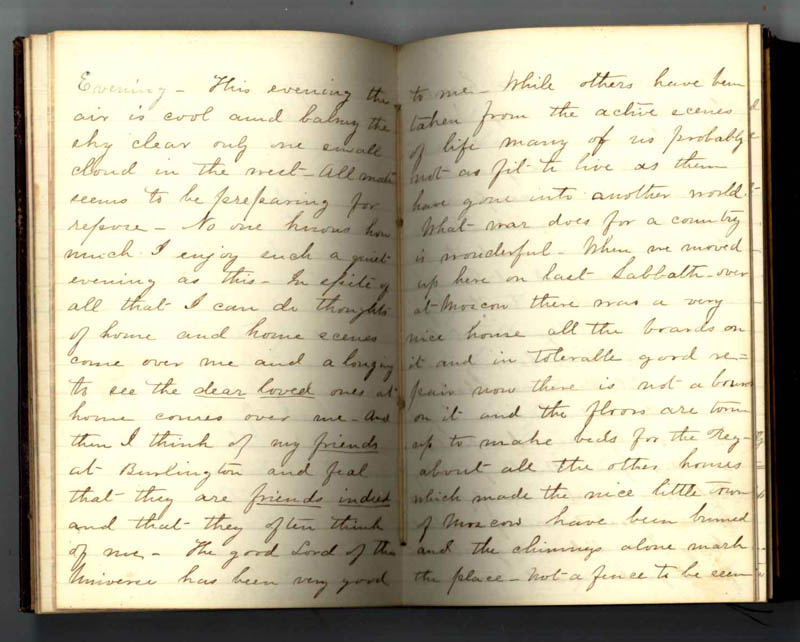 Evening - This evening the
air is cool amd balmy the
sky clear only one small
cloud in the west - All
seems to be preparing for
repose - No one knows how
much I enjoy such a quiet
evening as this - In spite of
all that I can do thoughts
of home and home scenes
come over me and a longing
to see the dear loved ones at
home comes over me - And
then I think of my friends
at Burlington and feal
that they are friends indeed
and that they often think
of me - The good Lord of this
Universe has been very good
to me - While others have been
taken from the active scenes
of life many of us probably
not as fit to live as them
have gone into another world.
What war does for a country
is wonderful - When we moved
up here on last Sabbath - over
at Moscow there was a very
nice house all the boards on
it and in tolerable good re=
pair now there is not a
on it and the floors are torn
up to make beds for the Reg-
about all the other houses
which made the nice little town
of Moscow have been burned
and the chimneys alone mark
the place - Not a fence to be seen